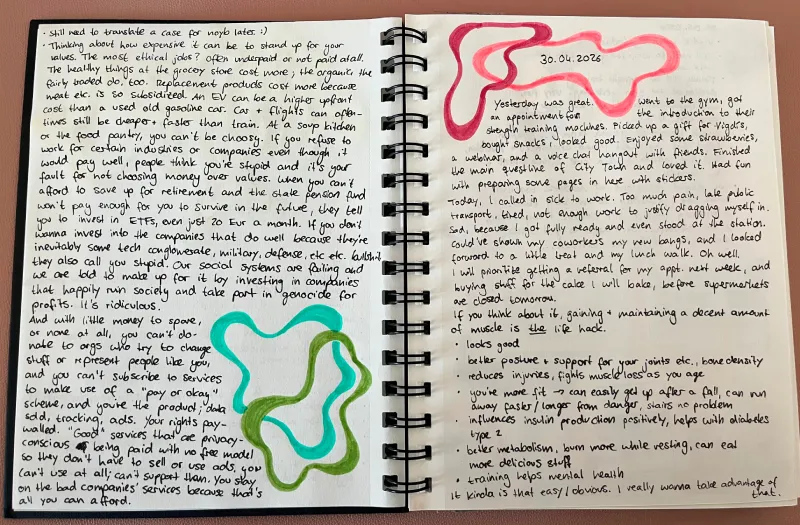 · Still need to translate a case for noyb later. :)
· Thinking about how expensive it can be to stand up for your
values. The most ethical jobs? Often underpaid or not paid at all.
The healthy things at the grocery store cost more; the organic, the
fairly traded do, too. Replacement products cost more because
meat etc. is so subsidized. An EV can be a higher upfront
cost than a used old gasoline car. Car + flights can often-
times still be cheaper + faster than train. At a soup kitchen
or the food pantry, you can't be choosy. If you refuse to
work for certain industries or companies even though it
would pay well, people think you're stupid and it's your
fault for not choosing money over values. When you can't
afford to save up for retirement and the state pension fund
won't pay enough for you to survive in the future, they tell
you to invest in ETFs, even just 20 Eur a month. If you don't
wanna invest into the companies that do well because they're
inevitably some tech conglomerate, military, defense, etc etc. bullshit
they also call you stupid. Our social systems are failing and
we are told to make up for it by investing in companies
that happily ruin society and take part in genocide for
profits. It's ridiculous.
And with little money to spare,
or none at all, you can't do-
nate to orgs who try to change
stuff or represent people like you,
and you can't subscribe to services
to make use of a "pay or okay"
scheme, and you're the product; data
sold, tracking, ads. Your rights pay-
walled. "Good" services that are privacy-
conscious being paid with no free model
so they don't have to sell or use ads, you
can't use at all; can't support them. You stay
on the bad companies' services because that's
all you can afford.
30.04.2026
Yesterday was great. Went to the gym, got
an appointment for the introduction to their
strength training machines. Picked up a gift for
bought snacks, looked good. Enjoyed some strawberries,
a webinar, and a voice chat hangout with friends. Finished
the main questline of City Town and loved it. Had fun
with preparing some pages in here with stickers.
Today, I called in sick to work. Too much pain, late public
transport, tired, not enough work to justify dragging myself in.
Sad, because I got fully ready and even stood at the station.
Could've shown my coworkers my new bangs, and I looked
forward to a little treat and my lunch walk. Oh well.
I will prioritize getting a referral for my appt. next week, and
buying stuff for the cake I will bake, before supermarkets
are closed tomorrow.
If you think about it, gaining + maintaining a decent amount
of muscle is the life hack.
• looks good
• better posture + support for your joints etc., bone density
• reduces injuries, fights muscle loss as you age
• you're more fit → can easily get up after a fall, can run
away faster/longer from danger, stairs no problem
• influences insulin production positively, helps with diabetes
type 2
• better metabolism, burn more while resting, can eat
more delicious stuff
• training helps mental health
It kinda is that easy/obvious. I really wanna take advantage of
that.